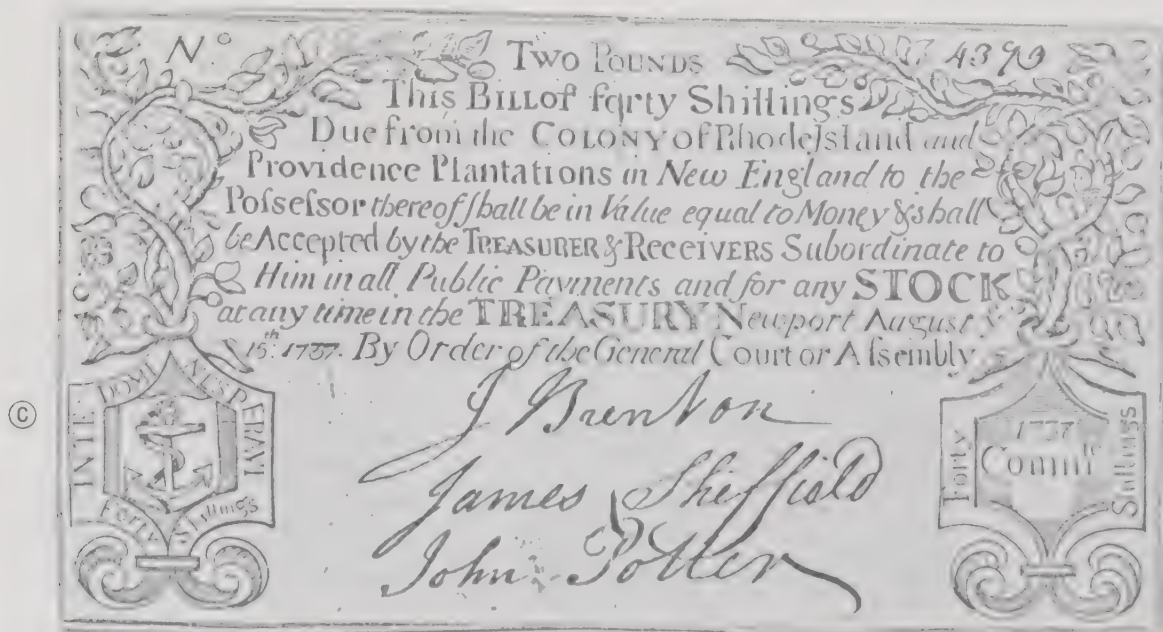 Nº
TWO POUNDS
This BILL of forty Shillings
Due from the COLONY of RhodeIsland and
Providence Plantations in New England to the
Poſseſsor thereof ſhall be in Value equal to Money & shall
be Accepted by the TREASURER & RECEIVERS Subordinate to
Him in all Public Payments and for any STOCK
at any time in the TREASURY Newport August
15th. 1737. By Order of the General Court or Aſsembly
INTE DOMI NE SPERAVI
Forty Shillings
J Brenton
James Sheffield
John Potter
Forty
1737
Shillings
©